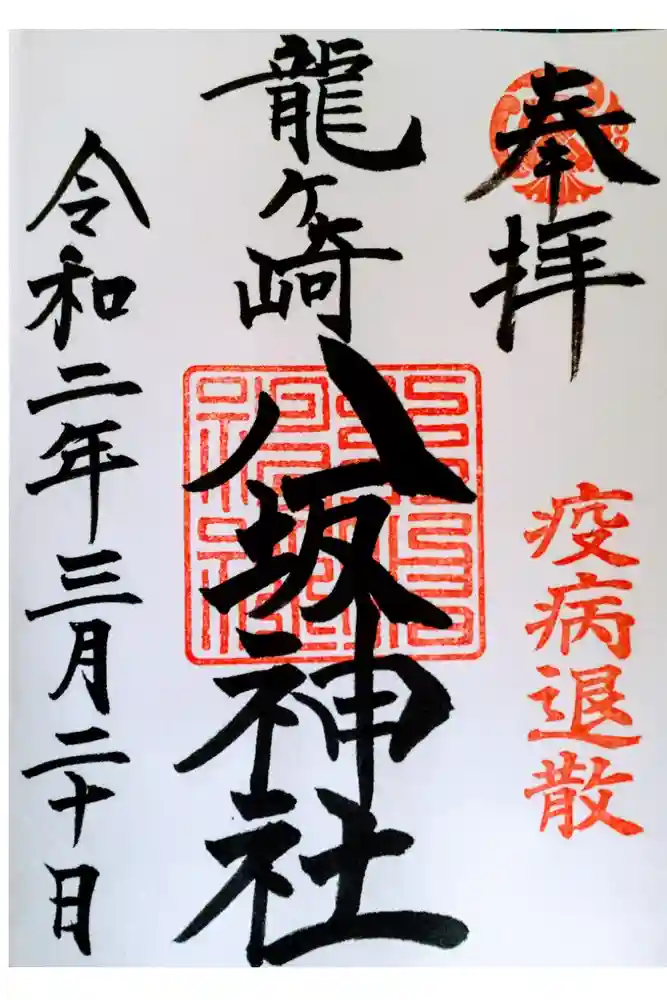 奉拝
疫病退散
龍ヶ崎
八坂神社
令和二年三月二十日